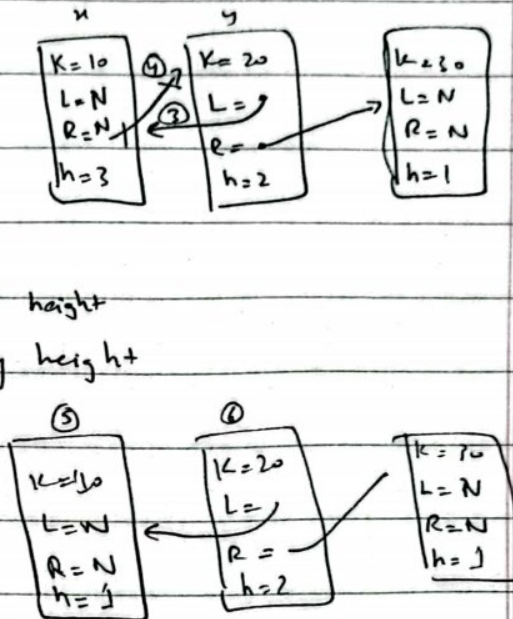 x y
K=10
L=N
R=N
h=3
④
③
K=20
L=
R=
h=2
K=30
L=N
R=N
h=1
height
height
⑤ ⑥
K=10
L=N
R=N
h=1
K=20
L=
R=
h=2
K=30
L=N
R=N
h=1